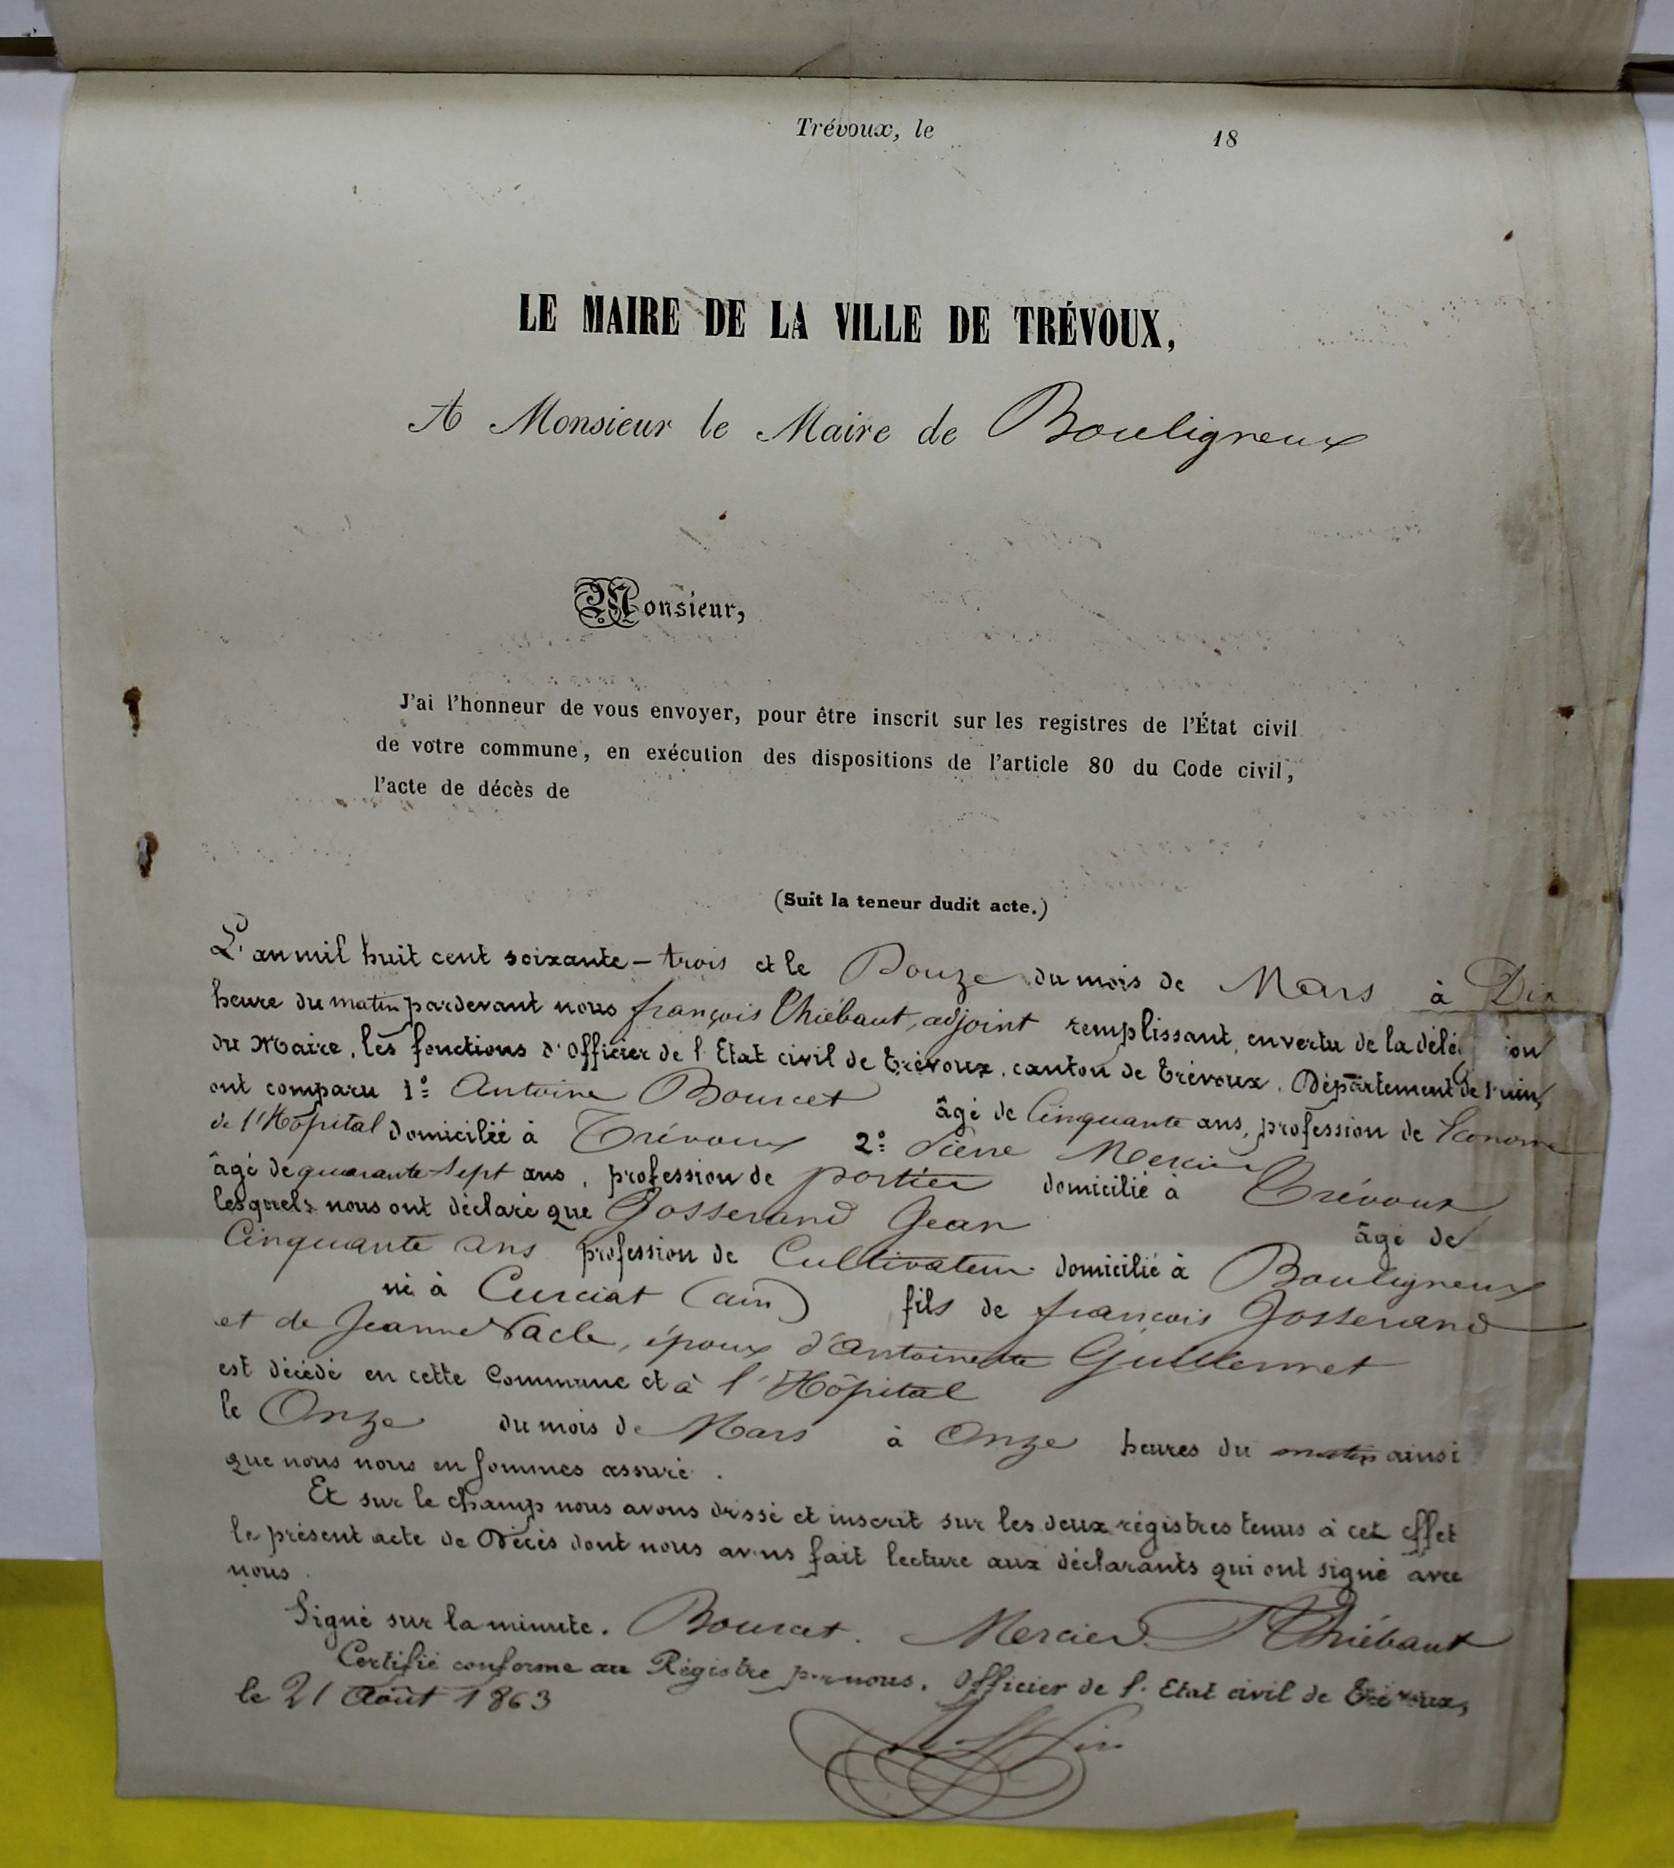 Trévoux, le 18
LE MAIRE DE LA VILLE DE TRÉVOUX,
A Monsieur le Maire de Bouligneux
Monsieur,
J'ai l'honneur de vous envoyer, pour être inscrit sur les registres de l'État civil
de votre commune, en exécution des dispositions de l'article 80 du Code civil,
l'acte de décès de
(Suit la teneur dudit acte.)
L'an mil huit cent soixante-trois et le Douze du mois de Mars à Dix
heure du matin pardevant nous françois Thiébaut, adjoint remplissant, en vertu de la délé ion
du Maire, les fonctions d'Officier de l'Etat civil de Trévoux, canton de Trévoux, Département de l'ain,
ont comparu 1º Antoine Bourcet âgé de Cinquante ans, profession de Econome
de l'Hôpital domicilié à Trévoux 2º Pierre Mercier
âgé de quarante sept ans, profession de portier domicilié à Trévoux
lesquels nous ont déclaré que Josserand Jean âgé de
Cinquante ans profession de Cultivateur domicilié à Bouligneux
né à Curciat (ain) fils de françois Josserand
et de Jeanne Vacle, époux d'antoinette Guillermet
est décédé en cette Commune et à l'Hôpital
le Onze du mois de Mars à Onze heures du matin ainsi
que nous nous en sommes assuré.
Et sur le champ nous avons dressé et inscrit sur les deux régistres tenus à cet effet
le présent acte de Décès dont nous avons fait lecture aux déclarants qui ont signé avec
nous.
Signé sur la minute. Bourcet. Mercier. Thiébaut
Certifié conforme au Régistre par nous, Officier de l'Etat civil de Trévoux,
le 21 Août 1863